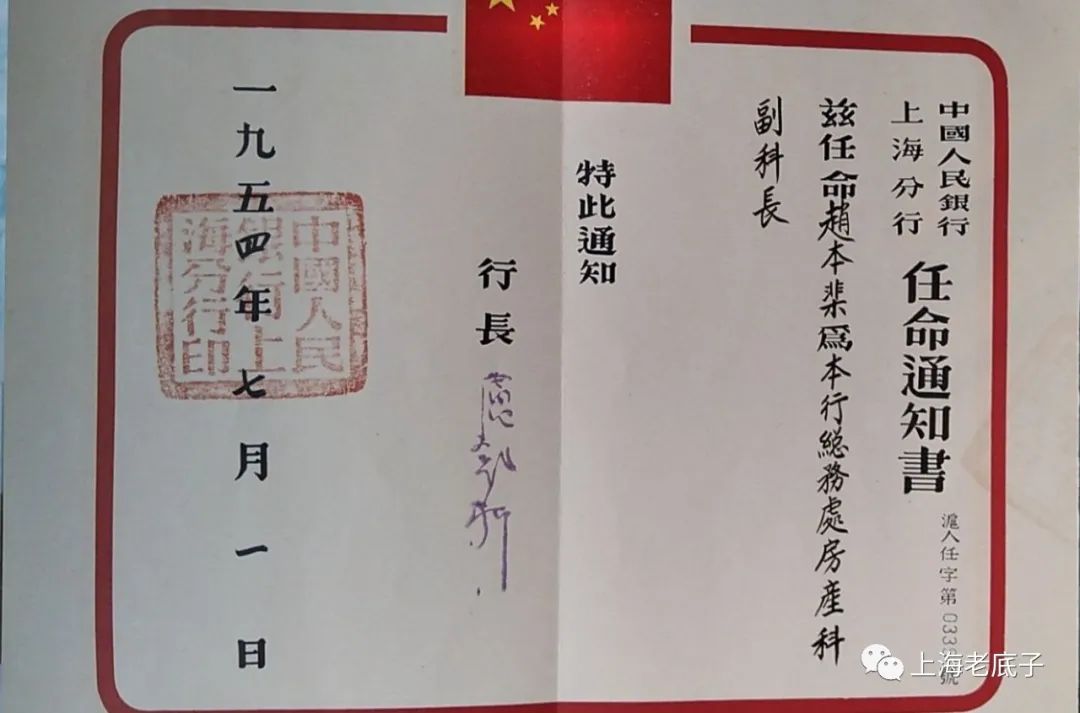 中國人民銀行
上海分行
任命通知書
滬人任字第033號
茲任命趙本棐爲本行総務處房産科
副科長
特此通知
行長
一九五四年七月一日
中國人民
銀行上
海分行印
上海老底子